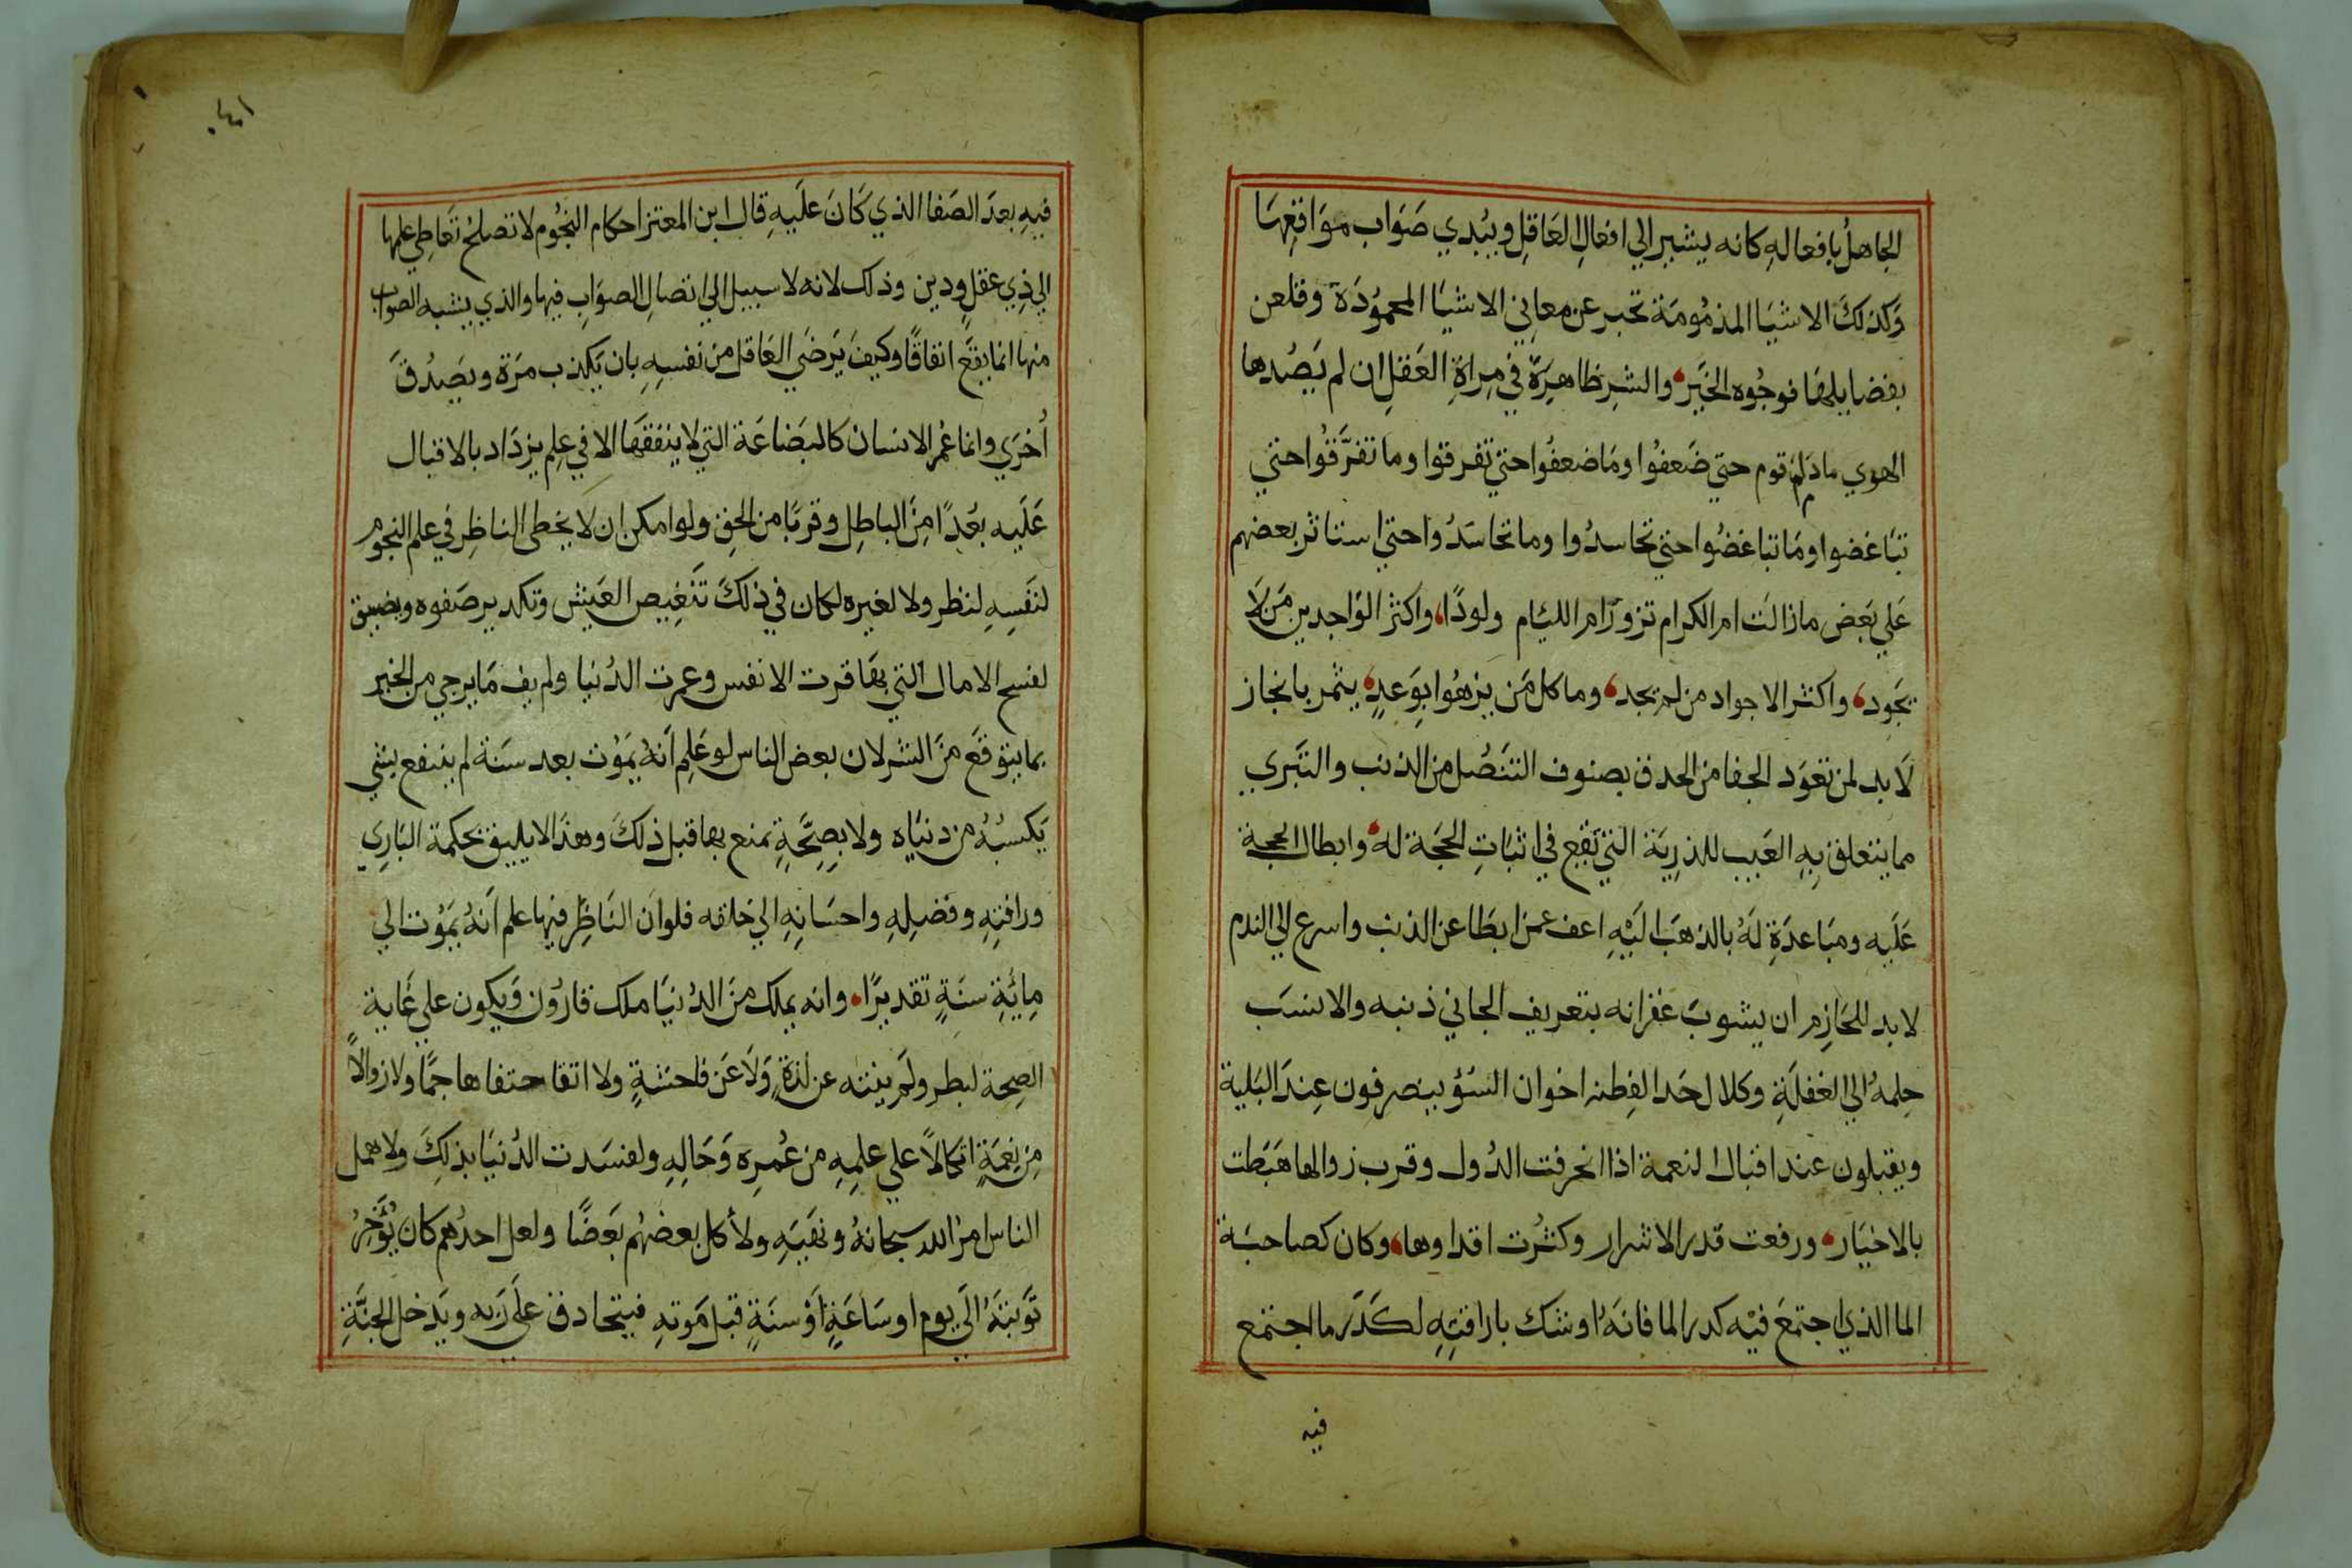 الجاهلُ بافعالهِ كانه يشير الي افعالِ العَاقِلِ ويُبْدي صَوَاب موَاقِعِهَا
وَكذلكَ الاشيَا المذمُومَة تخبر عن معاني الاشيَا المحموُدَة وقلعن
بفضايلهَا فوجُوه الخَير والشرِ ظاهِرَة في مِراةِ العَقلِ ان لم يَصُدها
الهوي ماذلّ قوم حتي ضَعفُوا ومَا ضعفُوا حتيّ تفرقوا وما تفرَّقوُا حتي
تبَاغضوا ومَا تباغضُوا حتي تحاسدُوا وما تحاسَدُوا حتي استاثر بعضهم
عَلي بَعِض مازالَت ام الكرام نزورَام الليَام ولودًا واكثر الوَاجدِين مَن لا
يجَود واكثر الاجواد من لم يجد وما كل مَن يزهُوا بِوَعدٍ يثمر بانجاز
لَابد لمن تعوَد الجفا من الحدق بصنوف التنَصُل من الذنب والتبَري
مما يتعلق بِهِ العَيب للذرِيَة التي تَقع في اثبَاتِ الحجَة لهُ وابطال الحجة
عَلَيه ومبَاعدَةِ لَهُ بالذهَب اليَهِ اعف عمن ابطَا عن الذنب واسرع الي الندم
لابد للحَازِم ان يشوبَ غفرانه بتعريف الجاني ذنبه والا نسَب
حِلمهُ الي الغفلَةِ وكلال حَد الفِطنه اخوان السُؤ ينصرفون عِندَ البَلية
ويقبلون عند اقبال النعمة اذا انحرفت الدُول وقرب زوالها هَبَطت
بالاخيَار ورفعت قدر الاشرار وكثُرت اقداوها وكان كصاحبَة
الما الذي اجتمعَ فيْه كدر الما فانَهُ اوشك باراقتِهِ لكَدَر ما اجتمع
فيه
فيهِ بعدَ الصَفا الذي كَانَ علَيهِ قال ابن المعتز احكام النجُوم لا تصلحُ تَعَاطِي علمها
الي ذِي عقلٍ ودين وذلك لانه لا سبيل الي اتصالِ الصوَابِ فيها والذي يشبه الصواب
منها انما يقعَ اتفاقًا وكيفَ يَرضَي العَاقل من نفسهِ بان يَكذب مَرَة ويَصِدُقَ
أخرَي وانما عُمْر الانسان كالبَضاعَة التي لا ينفقهَا الا في عِلِم يزدَاد بالاقبال
عَلَيه بعُدًا مِنَ الباطِل وقربًا من الحِق ولو امكن ان لا يخطي الناظِر في علم النجوم
لنَفسِهِ لنظر ولا لغيره لكان في ذلكَ تَنَغِيص العَيش وتكدير صَفوه ويضيق
لفسح الامال التي بهَا قرت الانفس وعمرت الدُنيا ولم يف مَا يرجي من الخير
بما يتوقعَ مَن الشر لان بعض الناس لو عَلِم اَنهُ يمَوُت بعد سَنة لم ينتفع بشي
يَكسبُهُ من دنيَاه ولا بِصِحَّةِ تمنع بها قبل ذلكَ وهذا لا يليق بحكمة البَارِي
ورافتِهِ وفضيلِهِ واحسَانِهِ الي خلقه فلو ان النَاظِر فيها علم اَنهُ يمَوُت الي
مِائَةِ سنَةٍ تقديرًا وانه يملك مِنَ الدُنيَا ملك قارُون وَيكون علي غَاية
الصِحة لبطر ولَم ينته عن لذةٍ وَلَا عَن فاحشةٍ ولا اتقا حتفا هاجمًا ولا زوالًا
مِن نِعمَةٍ اتكالاً علي علمِهِ من عُمِره وَحَالِهِ ولفسَدت الدُنيَا بذلِكَ ولاهمل
الناس امر الله سبحانهُ ونَهيَه ولأكل بعضهُم بَعَضًا ولعل احدُهم كان يُؤَخِرُ
تَوبَتهُ اليَ يوم او سَاعَةٍ اَوْ سنَةٍ قبل مَوتهِ فيتحادق عليَ رَبه ويَدخل الجنَّةِ